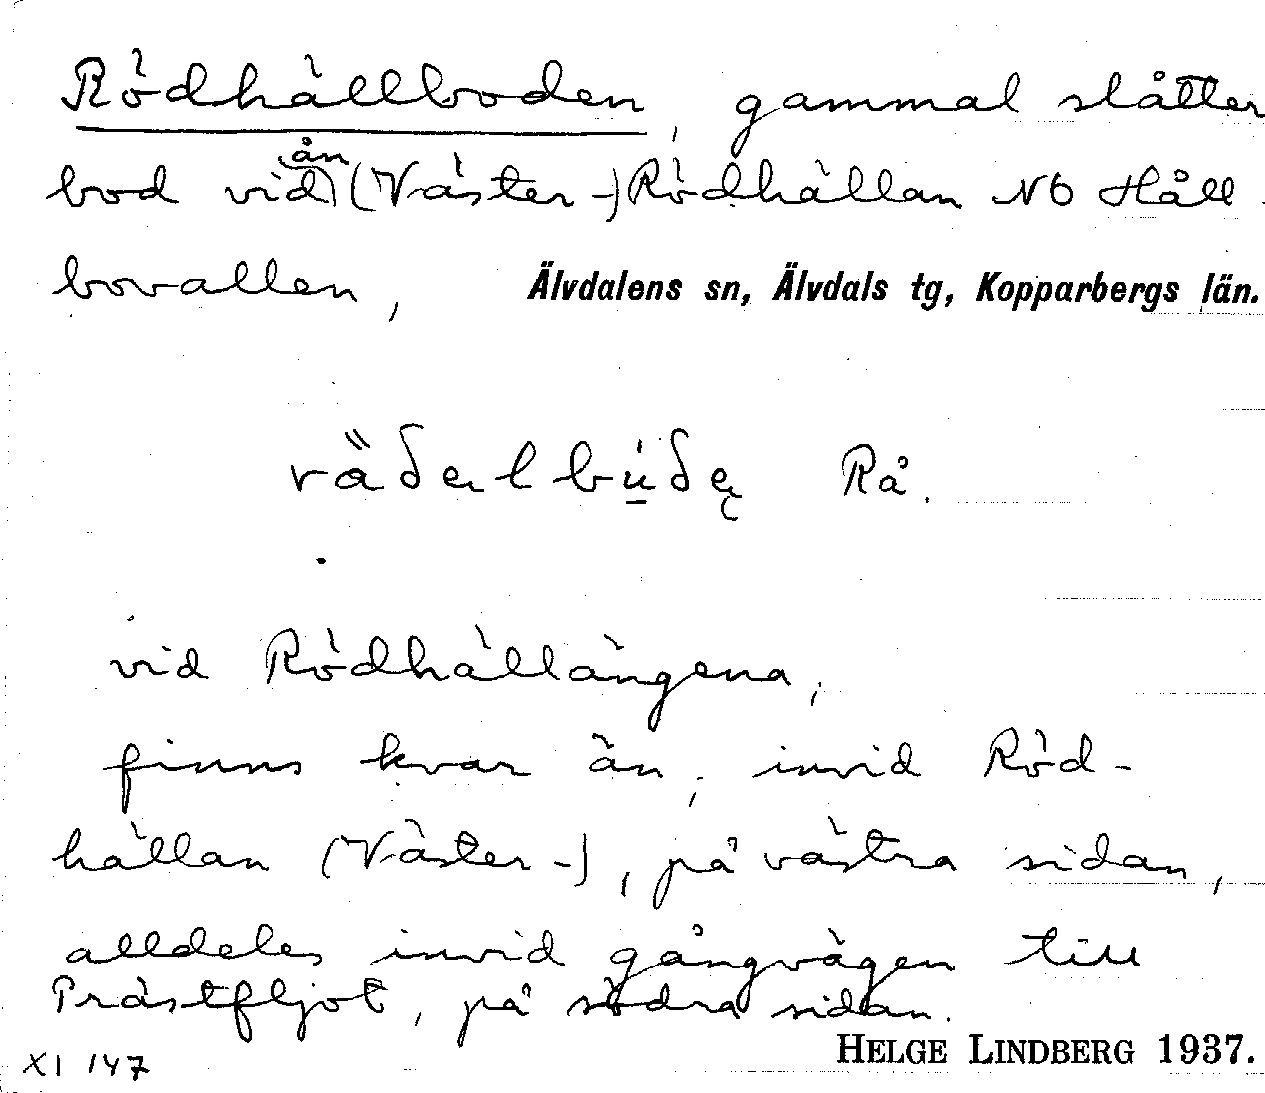 Rödhällboden, gammal slåtter
bod vid ån (Väster-) Rödhällan NÖ Håll
bovallen, Älvdalens sn, Älvdals tg, Kopparbergs län.
Rå.
vid Rödhällängena,
finns kvar än, invid Röd-
hällan (Väster-), på västra sidan,
alldeles invid gångvägen till
Prästfljot, på södra sidan.
XI 147 HELGE LINDBERG 1937.